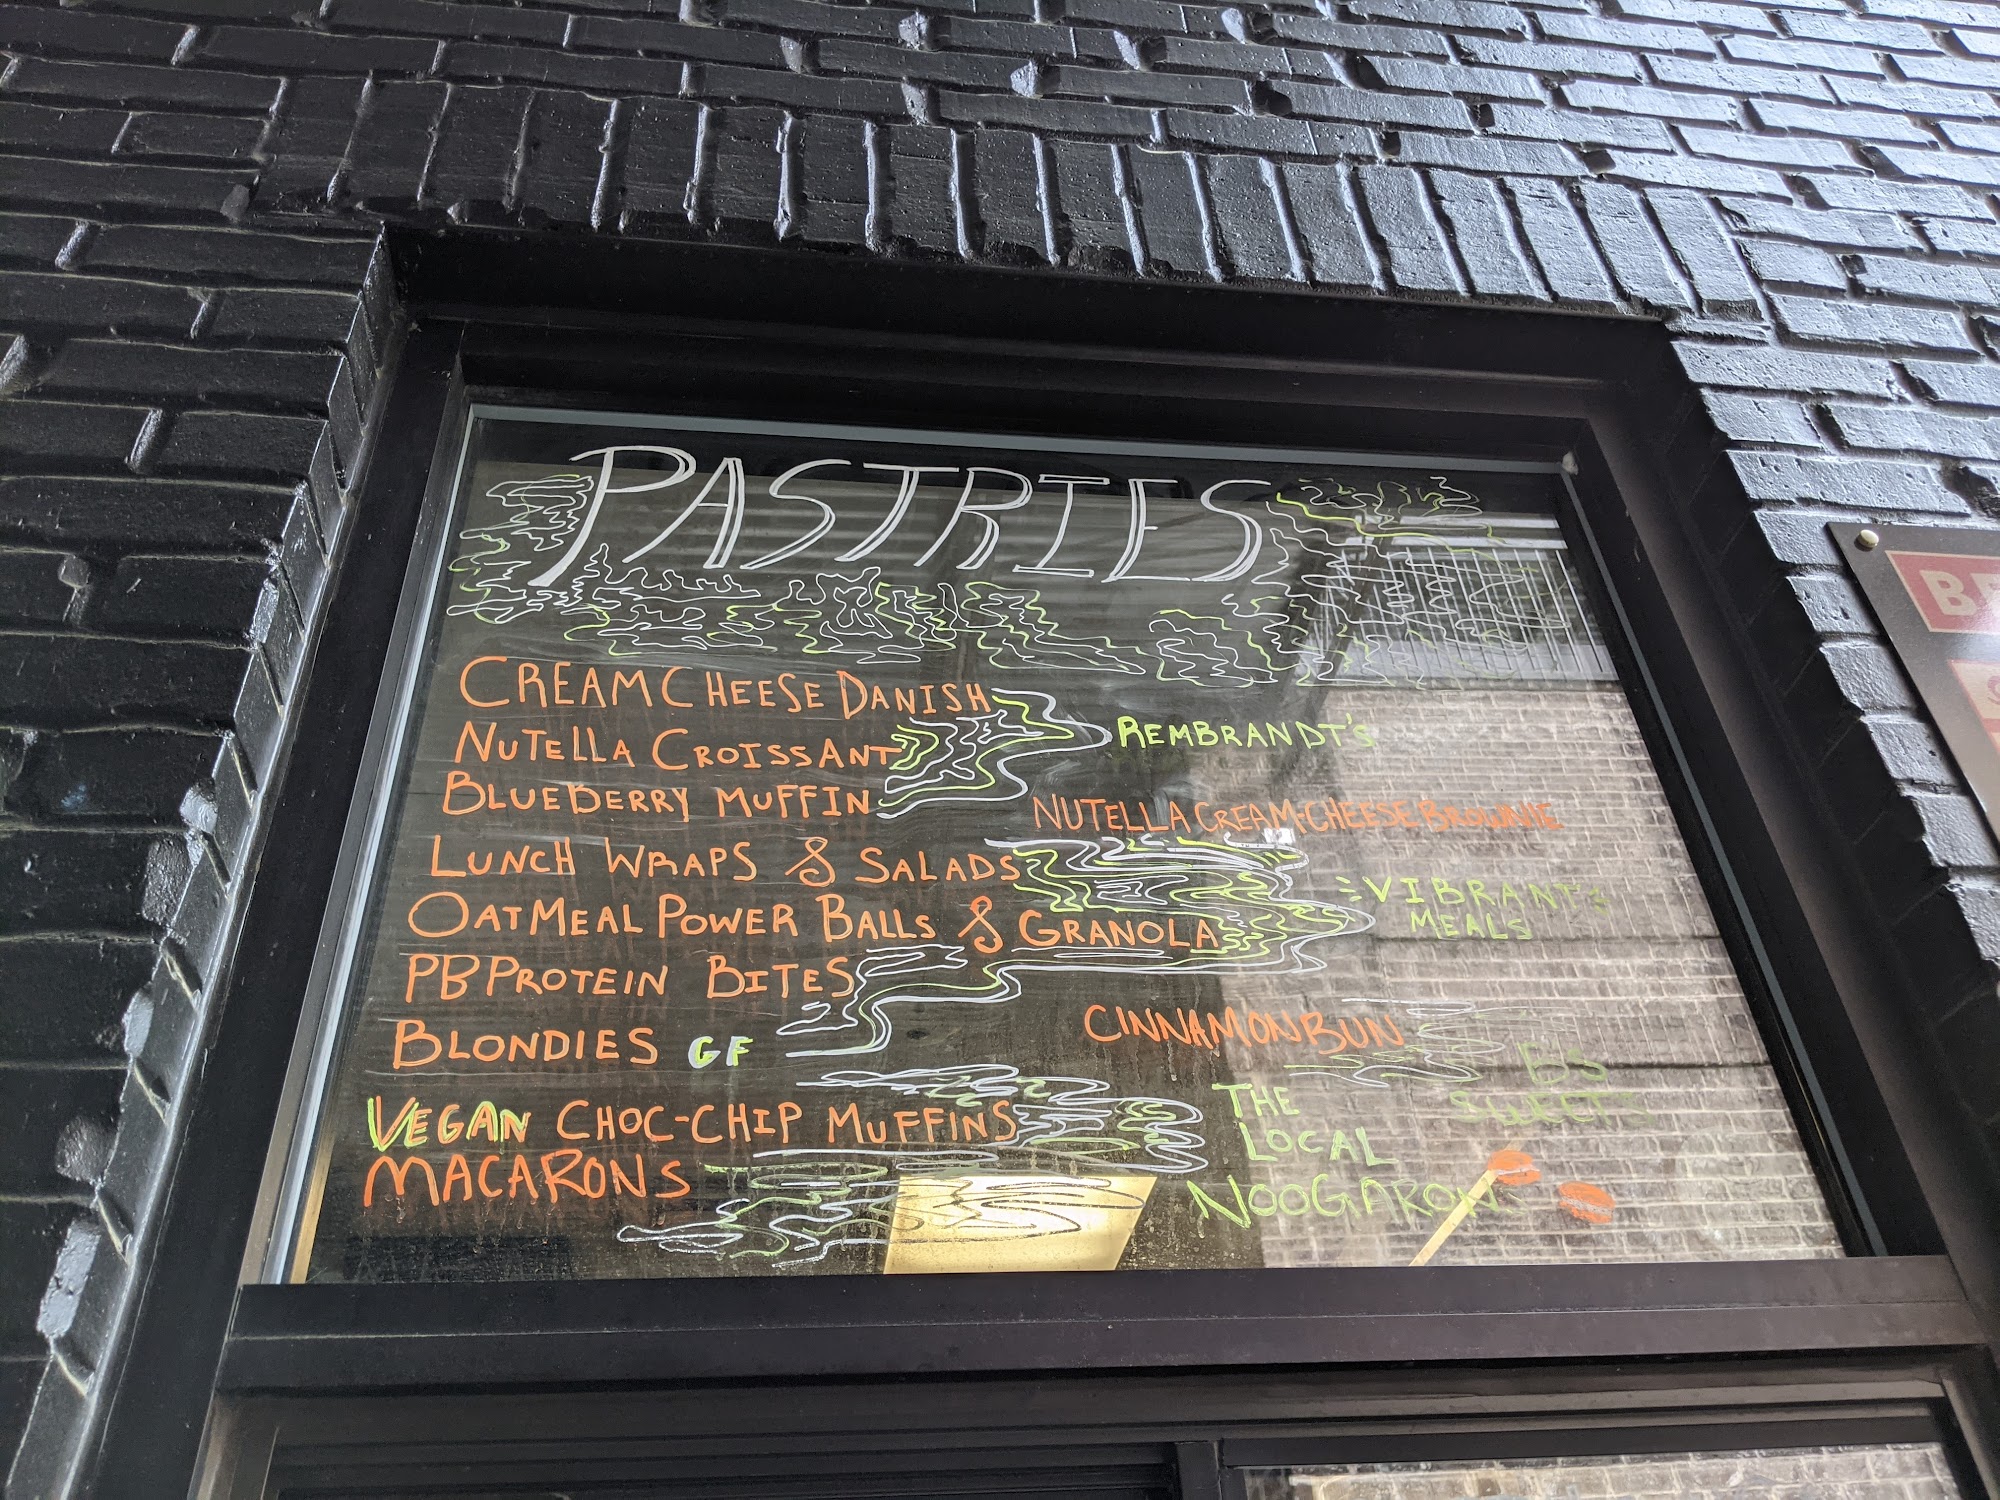 PASTRIES
CREAM CHEESE DANISH
NUTELLA CROISSANT
BLUEBERRY MUFFIN
REMBRANDT'S
NUTELLA CREAM-CHEESE BROWNIE
LUNCH WRAPS & SALADS
OATMEAL POWER BALLS & GRANOLA
PB PROTEIN BITES
BLONDIES GF
VIBRANT
MEALS
CINNAMON BUN
SWEETS
VEGAN CHOC-CHIP MUFFINS
MACARONS
THE
LOCAL
NOOGARONS